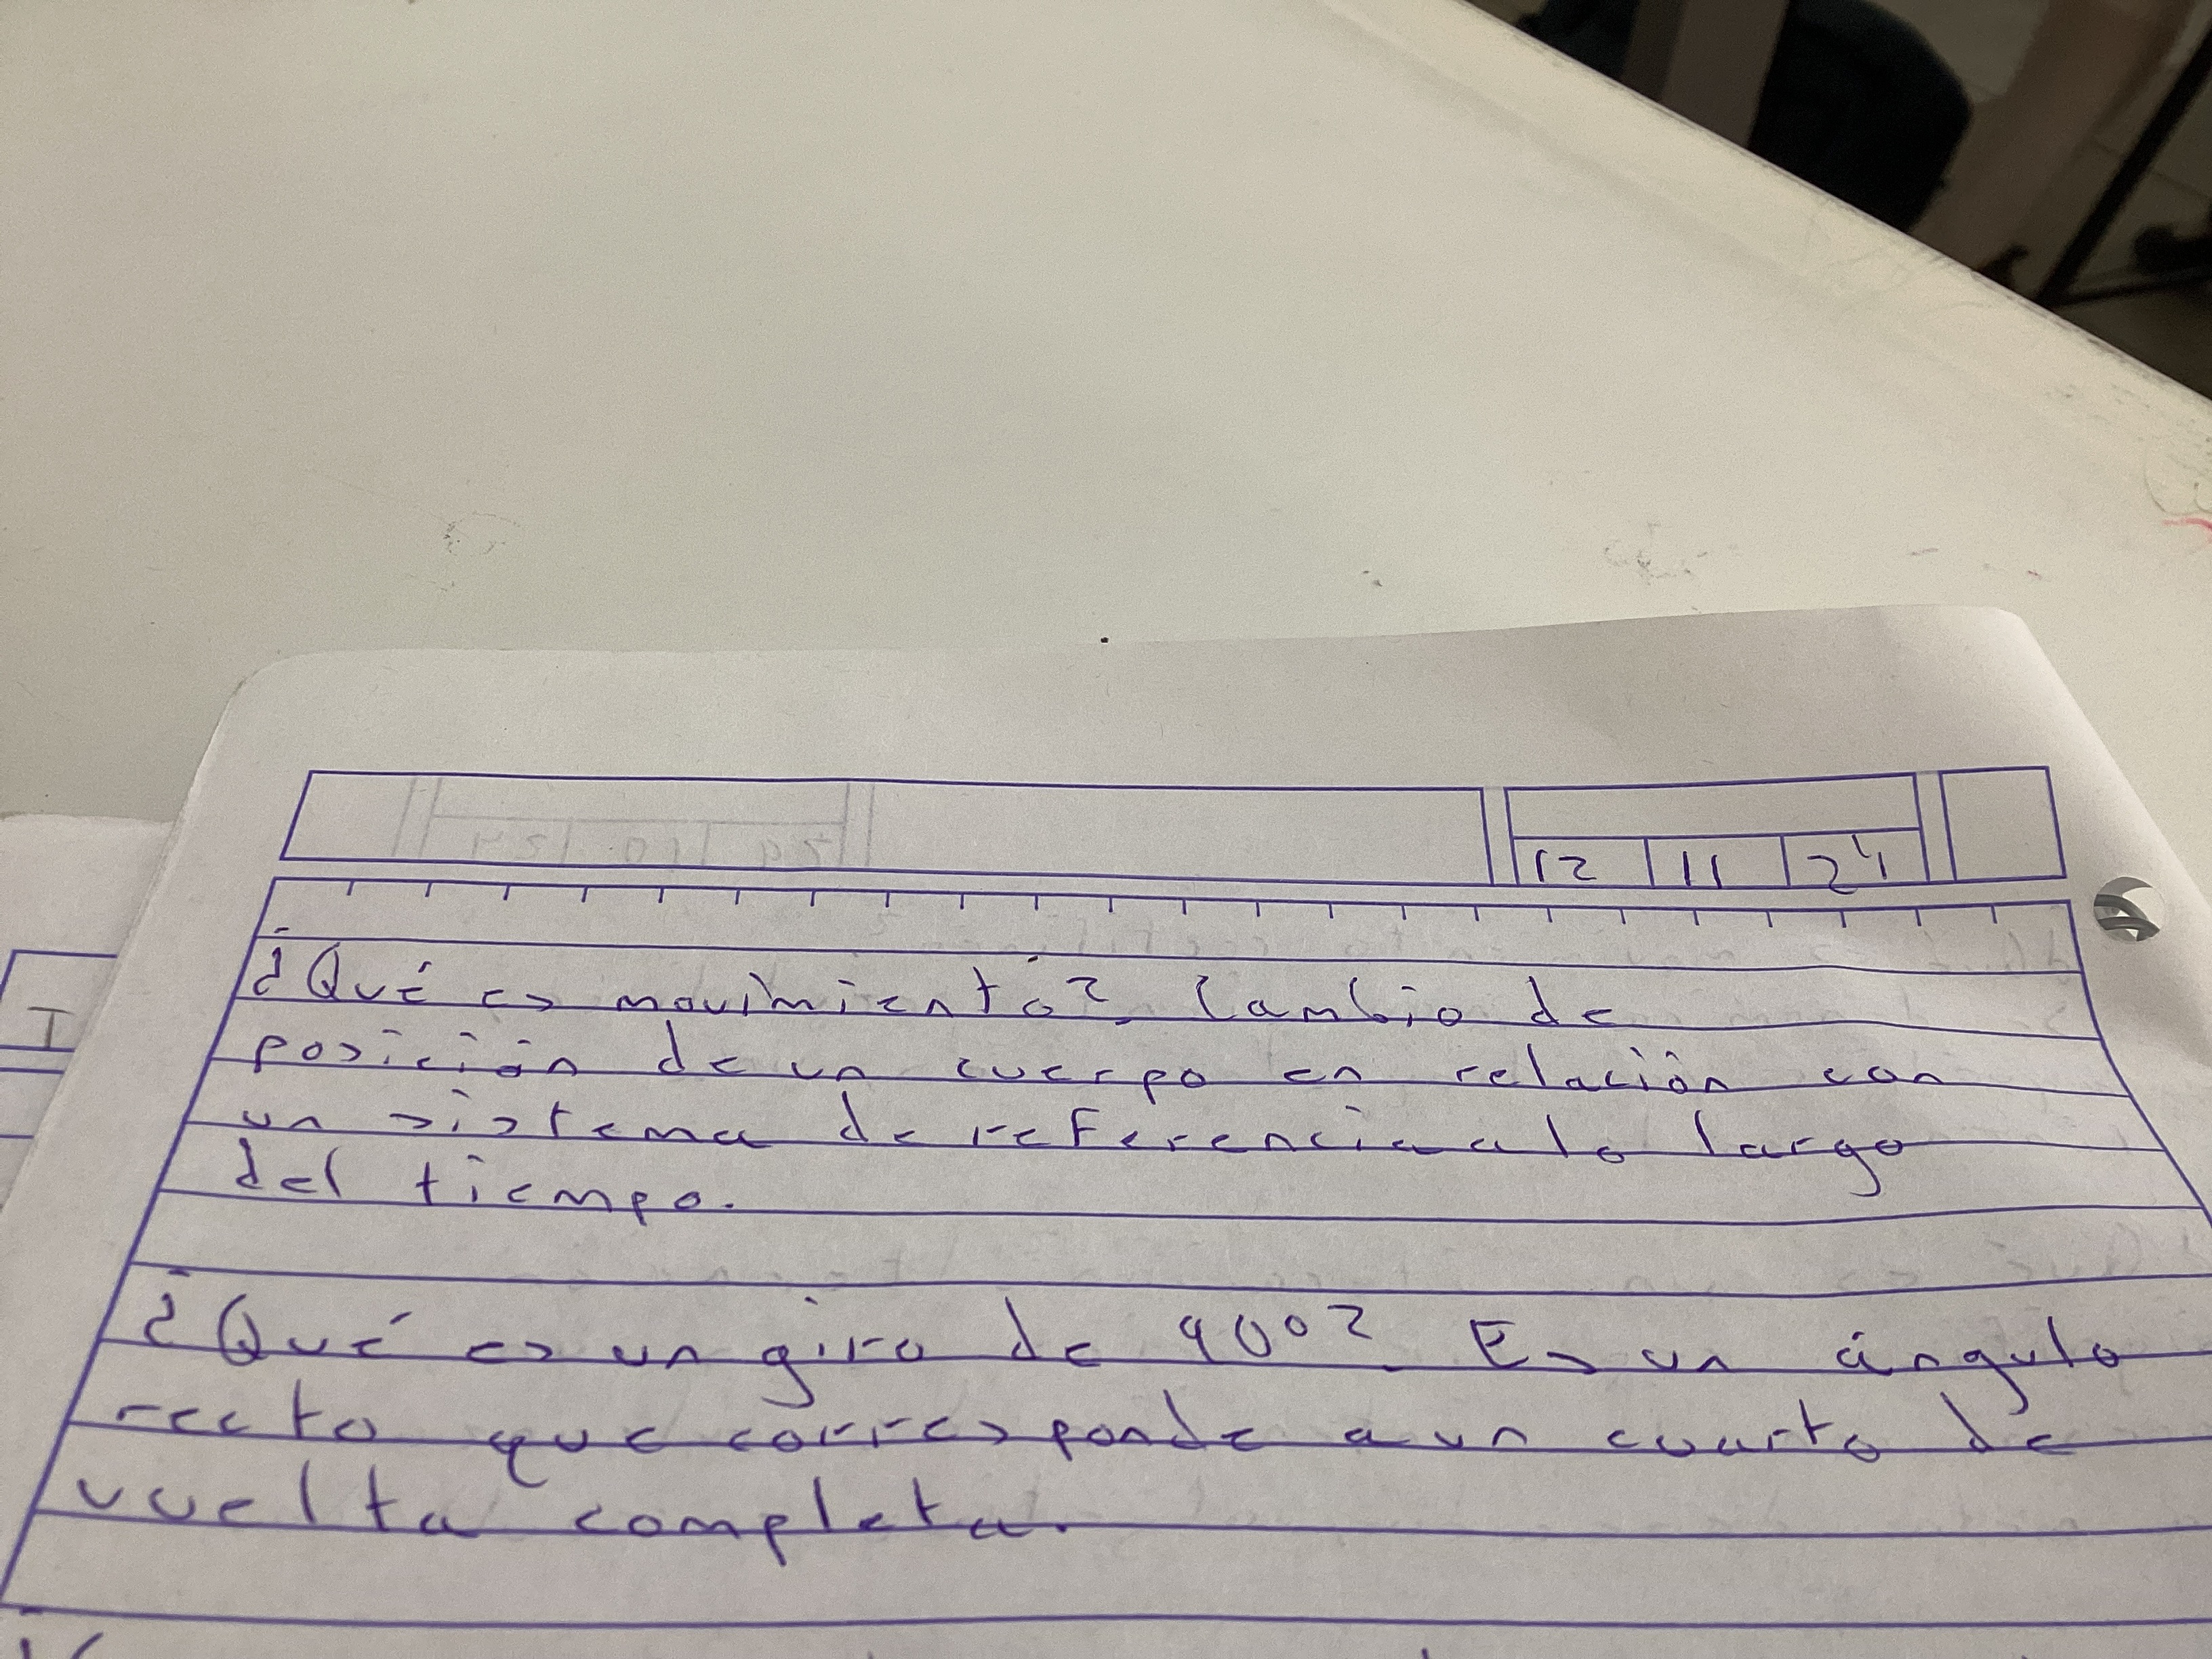 12 11 24
¿Qué es movimiento? Cambio de
posición de un cuerpo en relación con
un sistema de referencia a lo largo
del tiempo.
¿Qué es un giro de 90°? Es un ángulo
recto que corresponde a un cuarto de
vuelta completa.
I